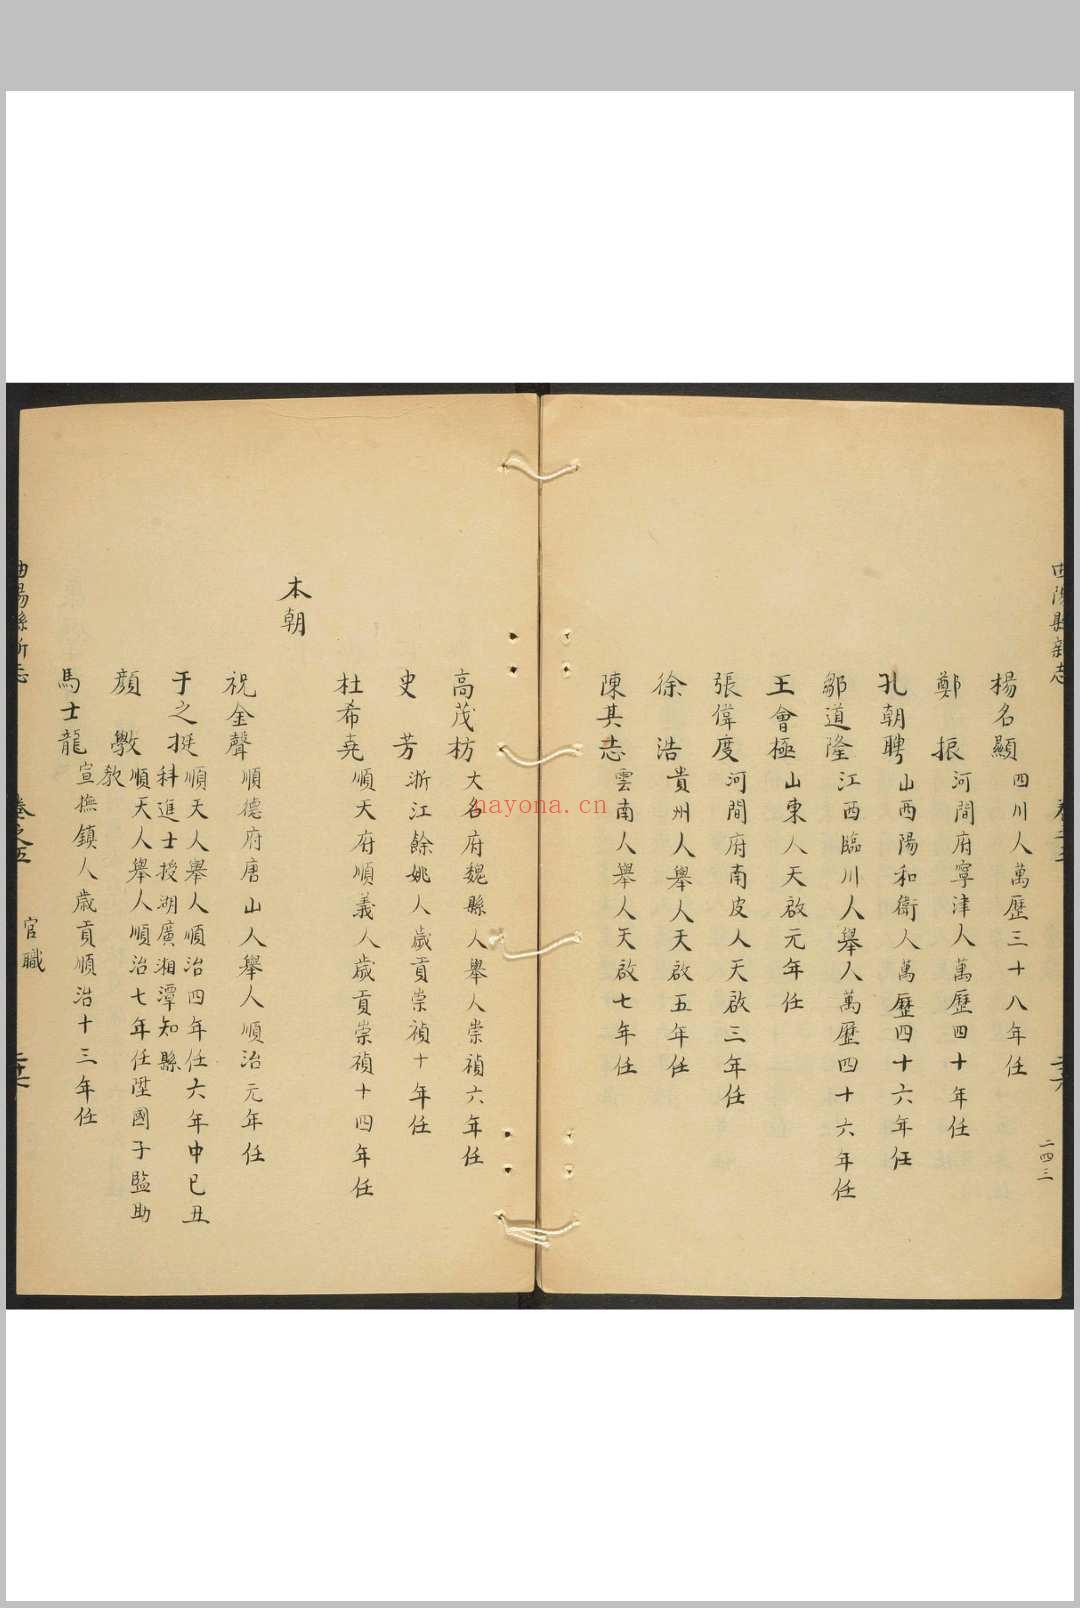 曲陽縣新志
二四三
楊名顯 四川人萬歷三十八年任
鄭 振 河間府寧津人萬歷四十年任
孔朝聘 山西陽和衛人萬歷四十六年任
鄒道隆 江西臨川人舉人萬歷四十六年任
王會極 山東人天啟元年任
張偉度 河間府南皮人天啟三年任
徐 浩 貴州人舉人天啟五年任
陳其志 雲南人舉人天啟七年任
高茂枋 大名府魏縣人舉人崇禎六年任
史 芳 浙江餘姚人歲貢崇禎十年任
杜希堯 順天府順義人歲貢崇禎十四年任
本朝
祝金聲 順德府唐山人舉人順治元年任
于之挺 順天人舉人順治四年任六年中已丑
科進士授湖廣湘潭知縣
顏 斆 順天人舉人順治七年任陞國子監助
教
馬士龍 宣撫鎮人歲貢順治十三年任
曲陽縣新志 卷之五 官職
nayona.cn